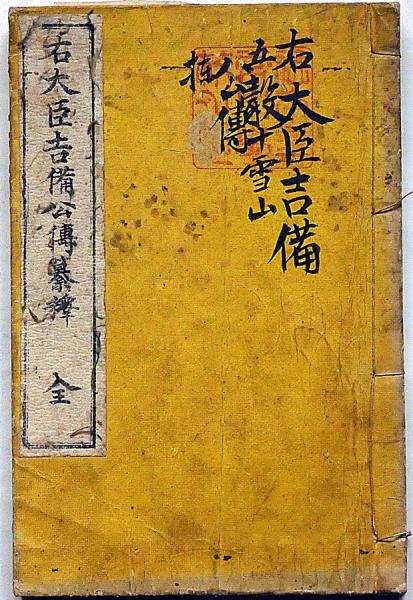 右大臣吉備
五
十雪山
公傳
右大臣吉備公傳纂釋 全